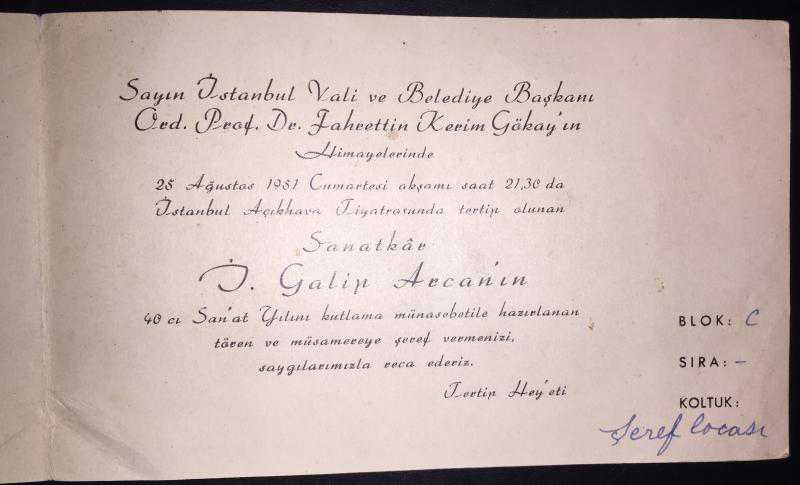 Sayın İstanbul Vali ve Belediye Başkanı
Ord. Prof. Dr. Fahrettin Kerim Gökay'ın
Himayelerinde
25 Ağustos 1951 Cumartesi akşamı saat 21,30 da
İstanbul Açıkhava Tiyatrosunda tertip olunan
Sanatkâr
İ. Galip Arcan'ın
40 cı San'at Yılını kutlama münasebetile hazırlanan
tören ve müsamereye şeref vermenizi,
saygılarımızla rica ederiz.
Tertip Hey'eti
BLOK: C
SIRA: –
KOLTUK:
Şeref locası